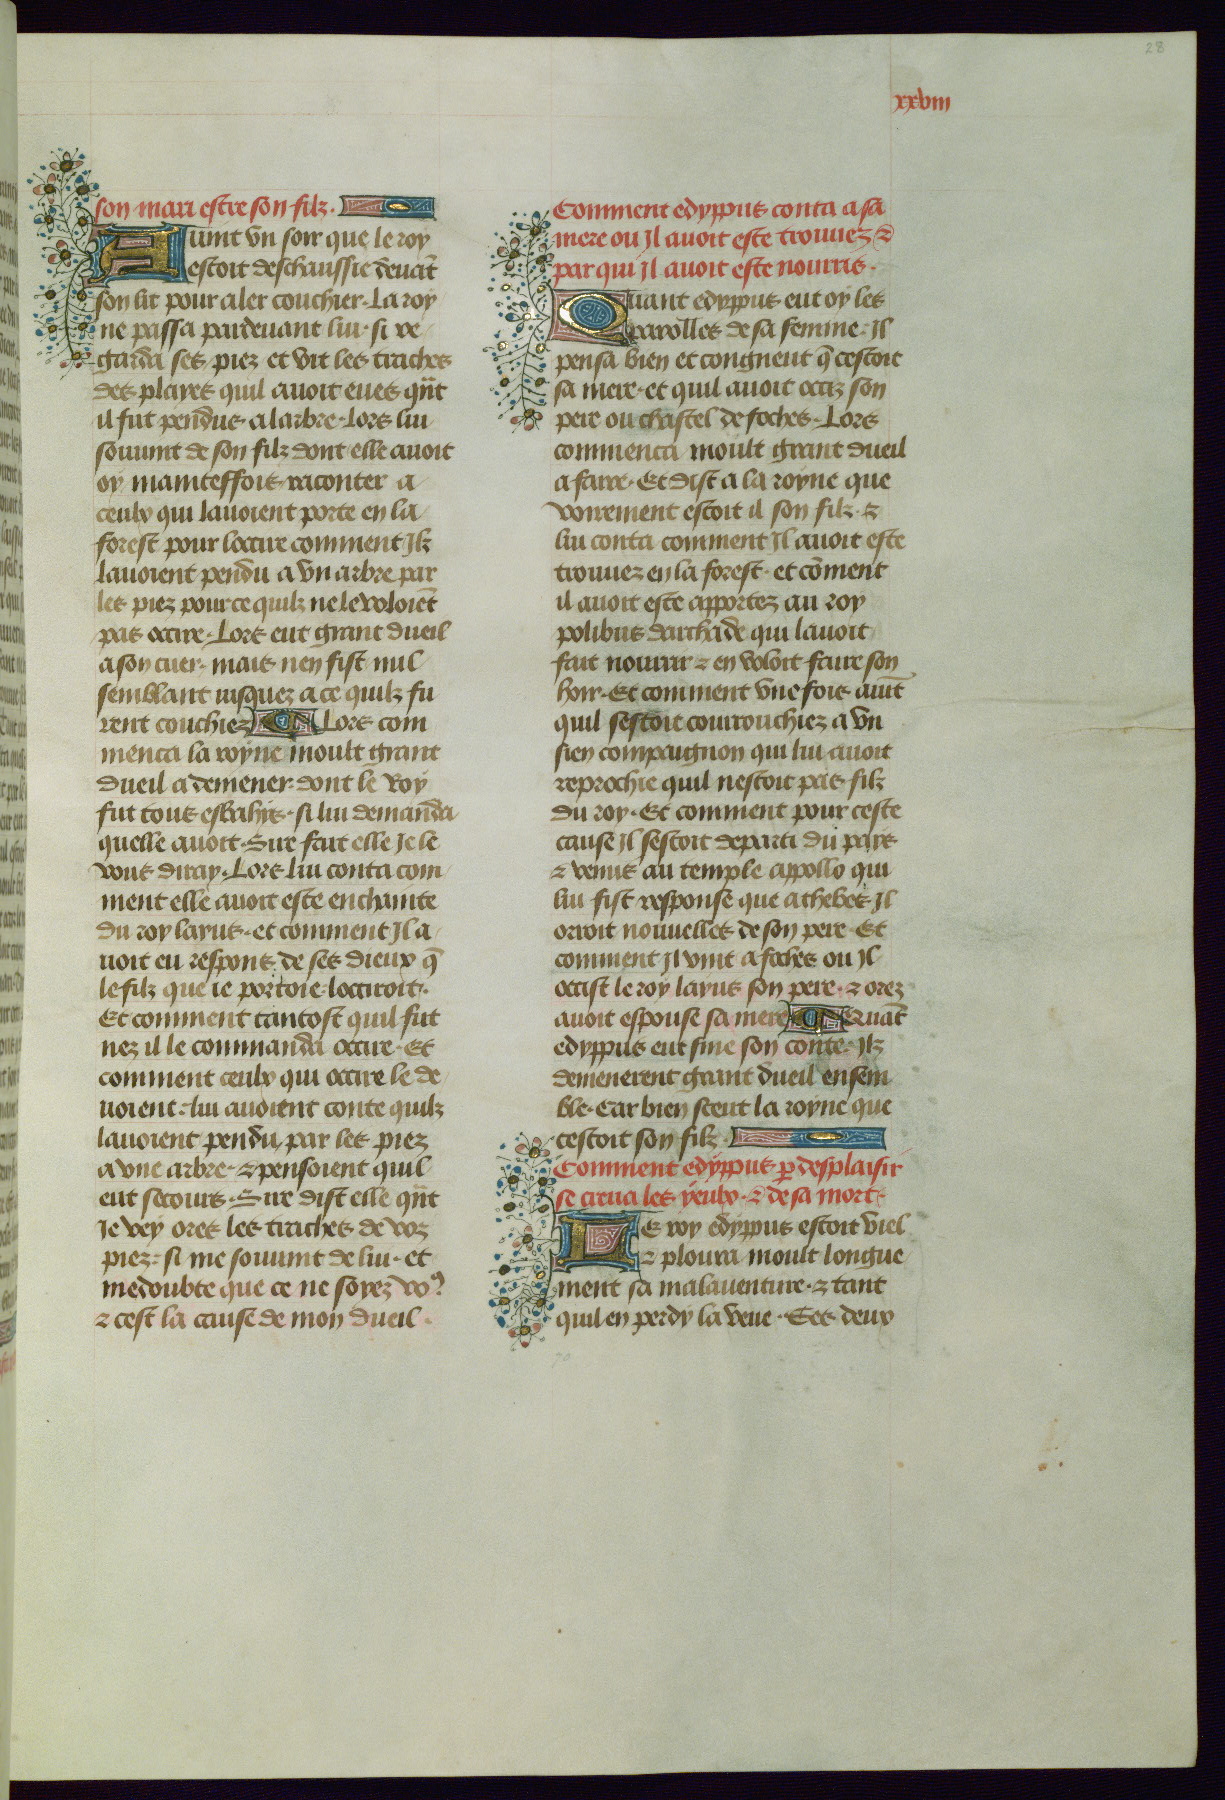 28
xxviii
son mari estre son filz.
Auint vn soir que le roy
estoit deschaussie deuāt
son lit pour aler couchier. La roy
ne passa pardeuant lui. si re
garda ses piez et vit les traches
des playes quil auoit eues qn̄t
il fut pendus a larbre. Lors lui
souuint de son filz dont elle auoit
oy maintesfois raconter a
ceulx qui lauoient porte en la
forest pour loccire comment Ilz
lauoient pendu a vn arbre par
les piez pource quilz ne le voloiēt
pas occire. Lors eut grant dueil
a son cuer. mais nen fist nul
semblant iusquez a ce quilz fu
rent couchiez Lors com
menca la royne moult grant
dueil a demener. dont le Roy
fut tous esbahis. si lui demanda
quelle auoit. Sire fait elle Je le
vous diray. Lors lui conta com
ment elle auoit este enchainte
du roy layus. et comment Il a
uoit eu respons de ses dieux q̄
le filz que ie portoie locciroit.
Et comment tantost quil fut
nez il le commanda occire. Et
comment ceulx qui occire le de
uoient. lui auoient conte quilz
lauoient pendu par les piez
a vne arbre. et pensoient quil
eut secours. Sire dist elle qn̄t
Je vey ores les traches de voz
piez. si me souuint de lui. et
me doubte que ce ne soyez voꝰ
et cest la cause de mon dueil.
Comment edyppus conta a sa
mere ou Il auoit este trouuez et
par qui Il auoit este nourris.
Quant edyppus eut oy les
parolles de sa femme. Il
pensa bien et congneut q̄ cestoit
sa mere. et quil auoit occiz son
pere ou chastel de foches. Lors
commenca moult grant dueil
a faire. Et dist a la royne que
voirement estoit il son filz. et
lui conta comment Il auoit este
trouuez en la forest. et cōment
il auoit este apportez au roy
polibus darchade qui lauoit
fait nourrir et en voloit faire son
hoir. Et comment vne fois auīt
quil sestoit courrouchiez a vn
sien compaignon qui lui auoit
reprochie quil nestoit pas filz
du roy. Et comment pour ceste
cause Il sestoit departi du pays
et venus au temple appollo qui
lui fist response que a thebes Il
orroit nouuelles de son pere. Et
comment Il vint a foches ou Il
occist le roy layus son pere. et orez
auoit espouse sa mere Quāt
edyppus eut fine son conte. Ilz
demenerent grant dueil ensem
ble. Car bien sceut la royne que
cestoit son filz.
Comment edyppus ꝑ desplaisir
se creua les yeulx. et de sa mort.
Le roy edyppus estoit viel
et ploura moult longue
ment sa malauenture. et tant
quil en perdy la veue. Ses deux